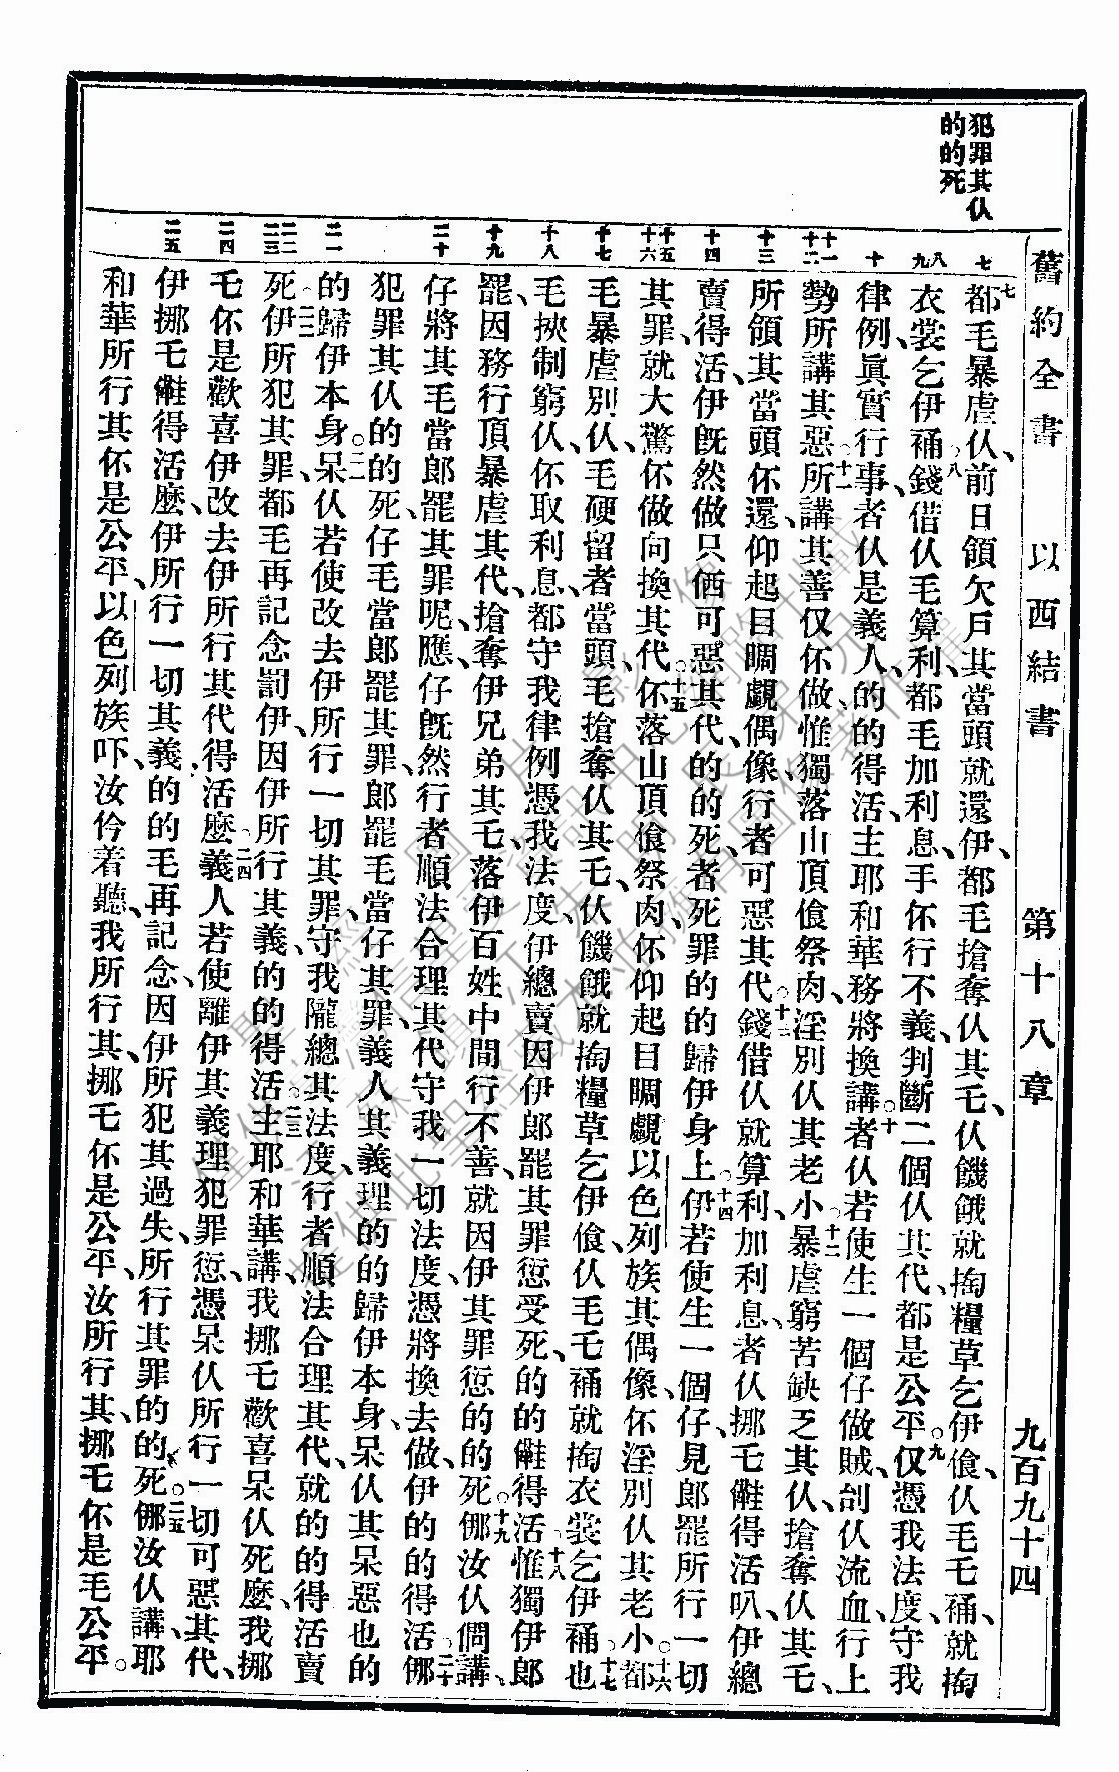 舊約全書 以西結書 第十八章 九百九十四
犯罪其仈
的的死
七 八 九 十 十一 十二 十三 十四 十五 十六 十七 十八 十九 二十 二一 二二 二三 二四 二五
七都毛暴虐仈、前日領欠戶其當頭就還伊、都毛搶奪仈其乇、仈饑餓就掏糧草乞伊飡、仈毛乇䘄、就掏
衣裳乞伊䘄、八錢借仈毛算利、都毛加利息、手伓行不義、判斷二個仈其代、都是公平。九仅憑我法度、守我
律例、眞實行事者仈是義人、的的得活、主耶和華務將換講。十者仈若使生一個仔做賊、刣仈流血、行上
勢所講其惡、十一所講其善仅伓做、惟獨落山頂飡祭肉、淫別仈其老小、十二暴虐窮苦缺乏其仈、搶奪仈其乇、
所領其當頭伓還、仰起目睭覷偶像、行者可惡其代。十三錢借仈就算利、加利息、者仈挪乇𣍐得活叭、伊總
賣得活、伊旣然做只㑚可惡其代、的的死、者死罪的的歸伊身上、十四伊若使生一個仔、見郎罷所行一切
其罪、就大驚伓做向換其代。十五伓落山頂飡祭肉、伓仰起目睭覷以色列族其偶像、伓淫別仈其老小。十六都
毛暴虐別仈、毛硬留者當頭、毛搶奪仈其乇、仈饑餓就掏糧草乞伊飡、仈毛乇䘄就掏衣裳乞伊䘄、十七也
毛挾制窮仈、伓取利息、都守我律例、憑我法度、伊總賣因伊郎罷其罪愆受死、的的𣍐得活、十八惟獨伊郎
罷、因務行頂暴虐其代、搶奪伊兄弟其乇、落伊百姓中間行不善、就因伊其罪愆的的死。十九㑚汝仈倜講、
仔將其毛當郎罷其罪呢、應、仔旣然行者順法合理其代、守我一切法度、憑將換去做、伊的的得活、二十㑚
犯罪其仈的的死、仔毛當郎罷其罪、郎罷毛當仔其罪、義人其義理的的歸伊本身、呆仈其呆惡也的
的歸伊本身。二一呆仈若使改去伊所行一切其罪、守我隴總其法度、行者順法合理其代、就的的得活賣
死、二二伊所犯其罪、都毛再記念罰伊、因伊所行其義的的得活。二三主耶和華講、我挪乇歡喜呆仈死麽、我挪
乇伓是歡喜伊改去伊所行其代得活麽、二四義人若使離伊其義理犯罪愆、憑呆仈所行一切可惡其代、
伊挪乇𣍐得活麽、伊所行一切其義的的毛再記念、因伊所犯其過失、所行其罪的的死。二五㑚汝仈講、耶
和華所行其伓是公平、以色列族吓、汝伶着聽、我所行其、挪乇伓是公平、汝所行其、挪乇伓是毛公平。